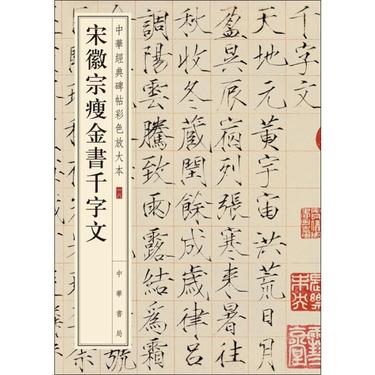 千字文
天地元黃宇宙洪荒日月
盈昃辰宿列張寒來暑往
秋收冬藏閏餘成歲律呂
調陽雲騰致雨露結為霜
號
中華經典碑帖彩色放大本
宋徽宗瘦金書千字文
中華書局